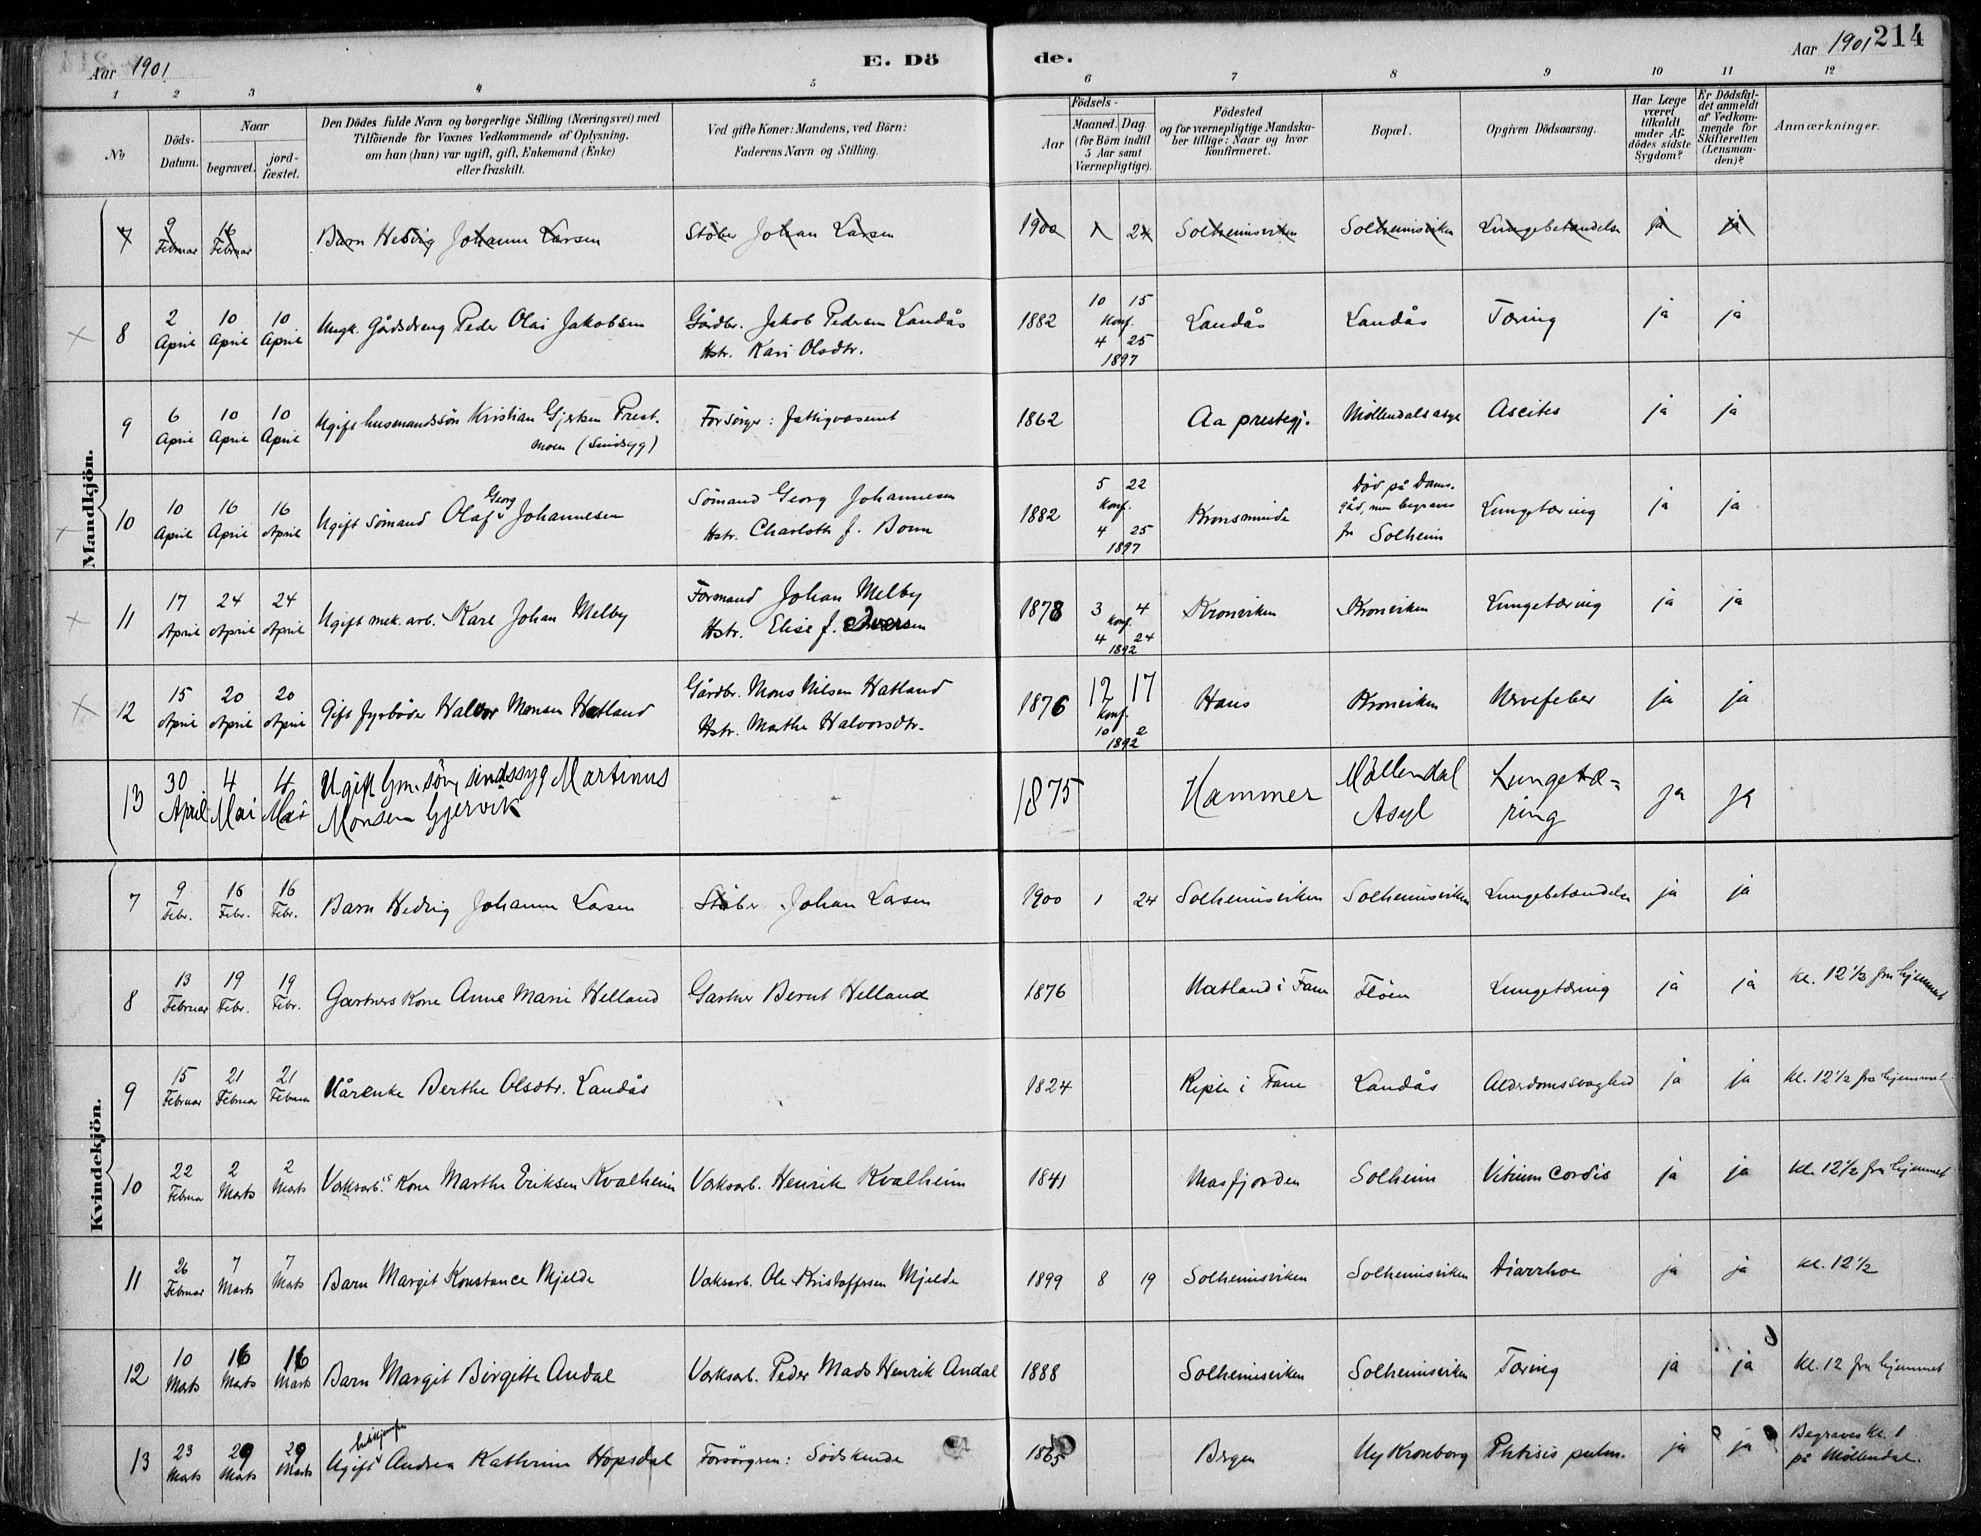 Aar 1901
E. Dö
de.
Aar 1901 214
1 2 3 4 5 6 7 8 9 10 11 12
№
Döds-Datum.
Naar
begravet.
jord-fæstet.
Den Dödes fulde Navn og borgerlige Stilling (Næringsvei) med
Tilföiende for Voxnes Vedkommende af Oplysning,
om han (hun) var ugift, gift, Enkemand (Enke)
eller fraskilt.
Ved gifte Koner: Mandens, ved Börn:
Faderens Navn og Stilling.
Födsels-
Aar
Maaned. Dag.
(for Börn indtil
5 Aar samt
Værnepligtige).
Födested
og for værnepligtige Mandska-
ber tillige: Naar og hvor
konfirmeret.
Bopæl.
Opgiven Dödsaarsag.
Har Læge
været
tilkaldt
under Af-
dödes sidste
Sygdom?
Er Dödsfal-
det anmeldt
af Vedkom-
mende for
Skifteretten
(Lensman-
den)?
Anmærkninger.
Mandkjön.
7 9 Februar 16 Februar Barn Hedvig Johanne Larsen Støber Johan Larsen 1900 1 24 Solheimsviken Solheimsviken Lungebetændelse ja ja
8 2 April 10 April 10 April Ungk. Gårdsdreng Peder Olai Jakobsen Gårdbr. Jakob Pedersen Landås
Hstr. Kari Olsdtr. 1882 10 15 Konf. 4 25 1897 Landås Landås Tæring ja ja
9 6 April 10 April 10 April Ugift husmandssøn Kristian Gjertsen Prest-
moen (Sindsyg) Forsørger: Fattigvæsenet 1862 Aa prestegj. Møllendals asyl Ascites ja ja
10 10 April 16 April 16 April Ugift sømand Olaf Georg Johannesen Sømand Georg Johannesen
Hstr. Charlotte f. Bonn 1882 5 22 Konf. 4 25 1897 Kronsminde Død på Dams-
gård, men begraves
fr Solheim Lungetæring ja ja
11 17 April 24 April 24 April Ugift mek. arb. Karl Johan Melby Formand Johan Melby
Hstr. Elise f. Iversen 1878 3 4 Konf. 4 24 1892 Kronviken Kronviken Lungetæring ja ja
12 15 April 20 April 20 April Gift fyrbøder Halvor Monsen Hatland Gårdbr. Mons Nilsen Hatland
Hstr. Marthe Halvorsdtr. 1876 12 17 Konf. 10 2 1892 Haus Kronviken Nervefeber ja ja
13 30 April 4 Mai 4 Mai Ugift Gm. søn, sindssyg Martinus
Monsen Gjervik 1875 Hammer Møllendal
Asyl Lungetæ-
ring ja ja
Kvindekjön.
7 9 Febr. 16 Febr. 16 Febr. Barn Hedvig Johanne Larsen Støber Johan Larsen 1900 1 24 Solheimsviken Solheimsviken Lungebetændelse ja ja
8 13 Februar 19 Febr. 19 Febr. Gartners Kone Anne Marie Helland Gartner Bernt Helland 1876 Natland i Fane Fløen Lungetæring ja ja kl. 12 1/2 fra hjemmet
9 15 Februar 21 Februar 21 Februar Kårenke Berthe Olsdtr. Landås 1824 Riple i Fane Landås Alderdomssvaghed ja ja kl. 12 1/2 fra hjemmet
10 22 Februar 2 Marts 2 Marts Værksarb.s Kone Marthe Eriksen Kvalheim Værksarb. Henrik Kvalheim 1841 Masfjorden Solheim Vitium cordis ja ja kl. 12 1/2 fra hjemmet
11 26 Februar 7 Marts 7 Marts Barn Margit Konstance Mjelde Værksarb. Ole Kristoffersen Mjelde 1899 8 19 Solheimsviken Solheimsviken Diarrhoe ja ja kl. 12 1/2
12 10 Marts 16 Marts 16 Marts Barn Margit Birgitte Andal Værksarb. Peder Mads Henrik Andal 1888 Solheimsviken Solheimsviken Tæring ja ja kl. 12 fra hjemmet
13 23 Marts 29 Marts 29 Marts Ugift Andrea Kathrine Hopsdal Forsørgeren: Sødskende 1865 Bergen Ny Kronborg Phtisis pulm. ja ja Begraves kl. 1
på Møllendal.